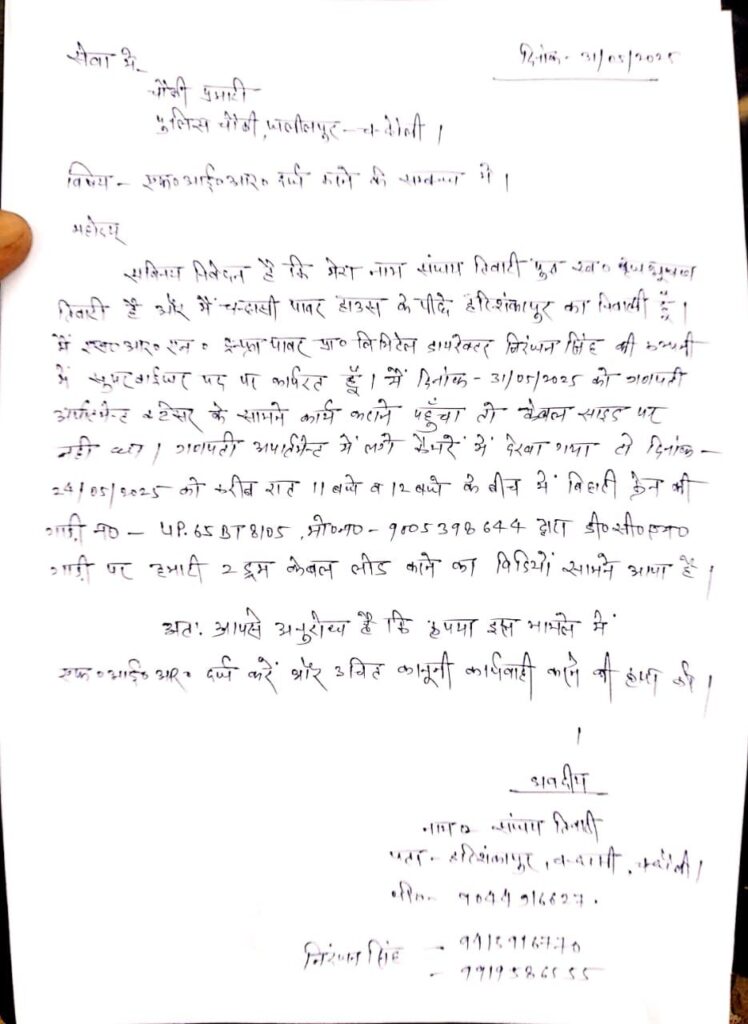 सेवा में
दिनांक- 31/05/2025
चौकी प्रभारी
पुलिस चौकी, जलीलपुर - चन्दौली।
विषय - एफ०आई०आर० दर्ज करने के सम्बन्ध में।
महोदय
सविनय निवेदन है कि मेरा नाम संजय तिवारी पुत्र स्व०
तिवारी है और मैं चन्दासी पावर हाउस के पीछे हरिशंकरपुर का निवासी हूँ।
मैं एस०आर०एन० इन्फ्रा पावर प्रा० लिमिटेड डायरेक्टर निरंजन सिंह की कम्पनी
में सुपरवाईजर पद पर कार्यरत हूँ। मैं दिनांक - 31/05/2025 को गणपती
अपार्टमेन्ट के सामने कार्य कराने पहुँचा तो केबल साइड पर
नही था। गणपती अपार्टमेन्ट में लगे कैमरे में देखा गया तो दिनांक -
24/05/2025 को करीब रात 11 बजे व 12 बजे के बीच में बिहारी क्रेन की
गाड़ी न० - UP.65 BT 8105, मो०न० - 9005398644 द्वारा डी०सी०एम०
गाड़ी पर हमारी 2 ड्रम केबल लोड करने का विडियों सामने आया है।
अतः आपसे अनुरोध है कि कृपया इस मामले में
एफ०आई०आर० दर्ज करें और उचित कानूनी कार्यवाही करने की कृपा करें।
।
भवदीय
संजय तिवारी
पता - हरिशंकरपुर, चन्दासी, चन्दौली।
9044916627.
निरंजन सिंह